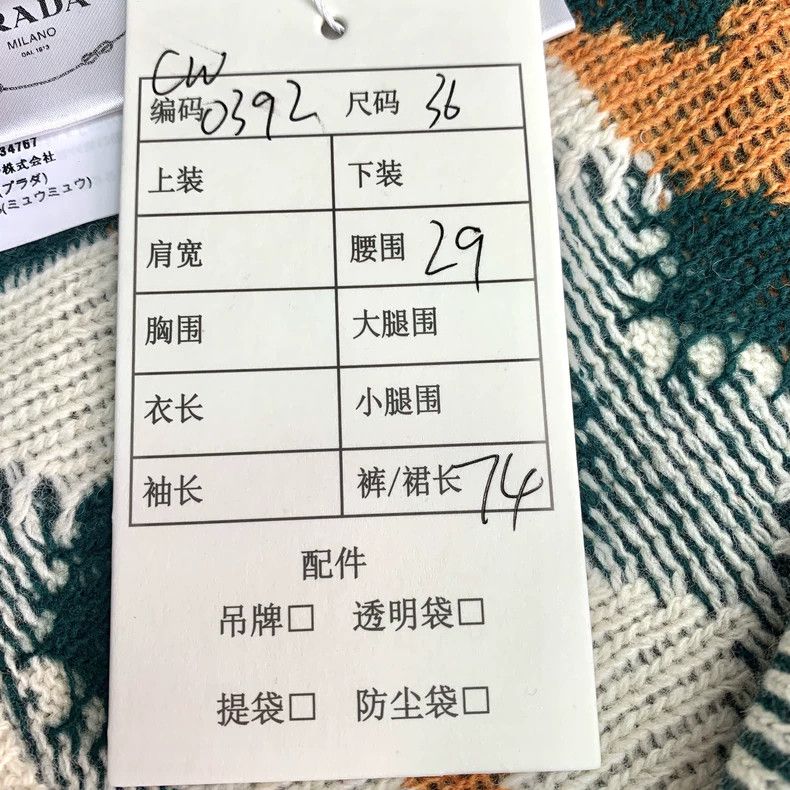 RADA
MILANO
DAL 1913
34767
株式会社
(プラダ)
(ミュウミュウ)
CW
编码 0392 尺码 36
上装 下装
肩宽 腰围 29
胸围 大腿围
衣长 小腿围
袖长 裤/裙长 74
配件
吊牌□ 透明袋□
提袋□ 防尘袋□